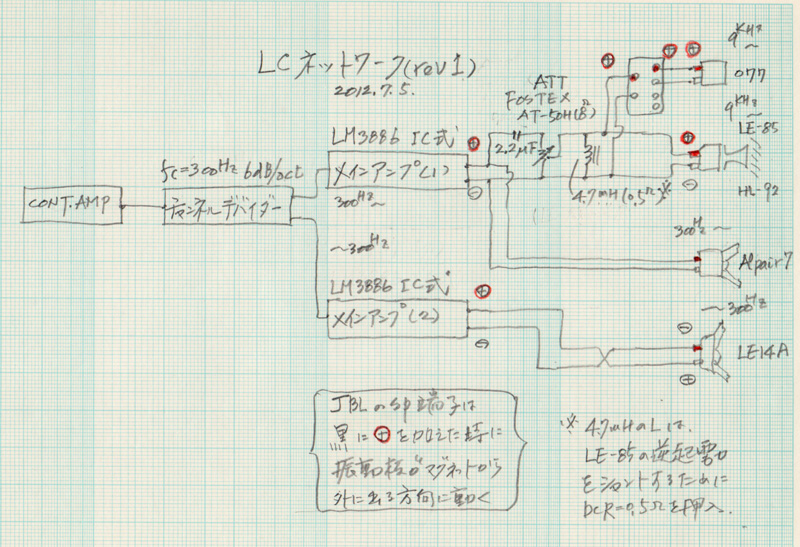 LCネットワーク(rev1)
2012.7.5.
CONT.AMP
fc=300Hz 6dB/oct
チャンネルデバイダー
LM3886 IC式
メインアンプ(1)
300Hz〜
〜300Hz
LM3886 IC式
メインアンプ(2)
⊕
⊖
⊕
⊖
2.2μF
ATT
FOSTEX
AT-50H(8Ω)
4.7mH(0.5Ω)※
⊕
⊕
⊕
9KHz
〜
077
9KHz
〜
LE-85
⊕
⊖
HL-92
300Hz〜
Alpair7
〜300Hz
⊖
⊕
LE14A
JBLのSP端子は
黒に⊕を加えた時に
振動板がマグネットから
外に出る方向に動く
※ 4.7mHのLは、
LE-85の逆起電力
をショートするために
DCR=0.5Ωを挿入.